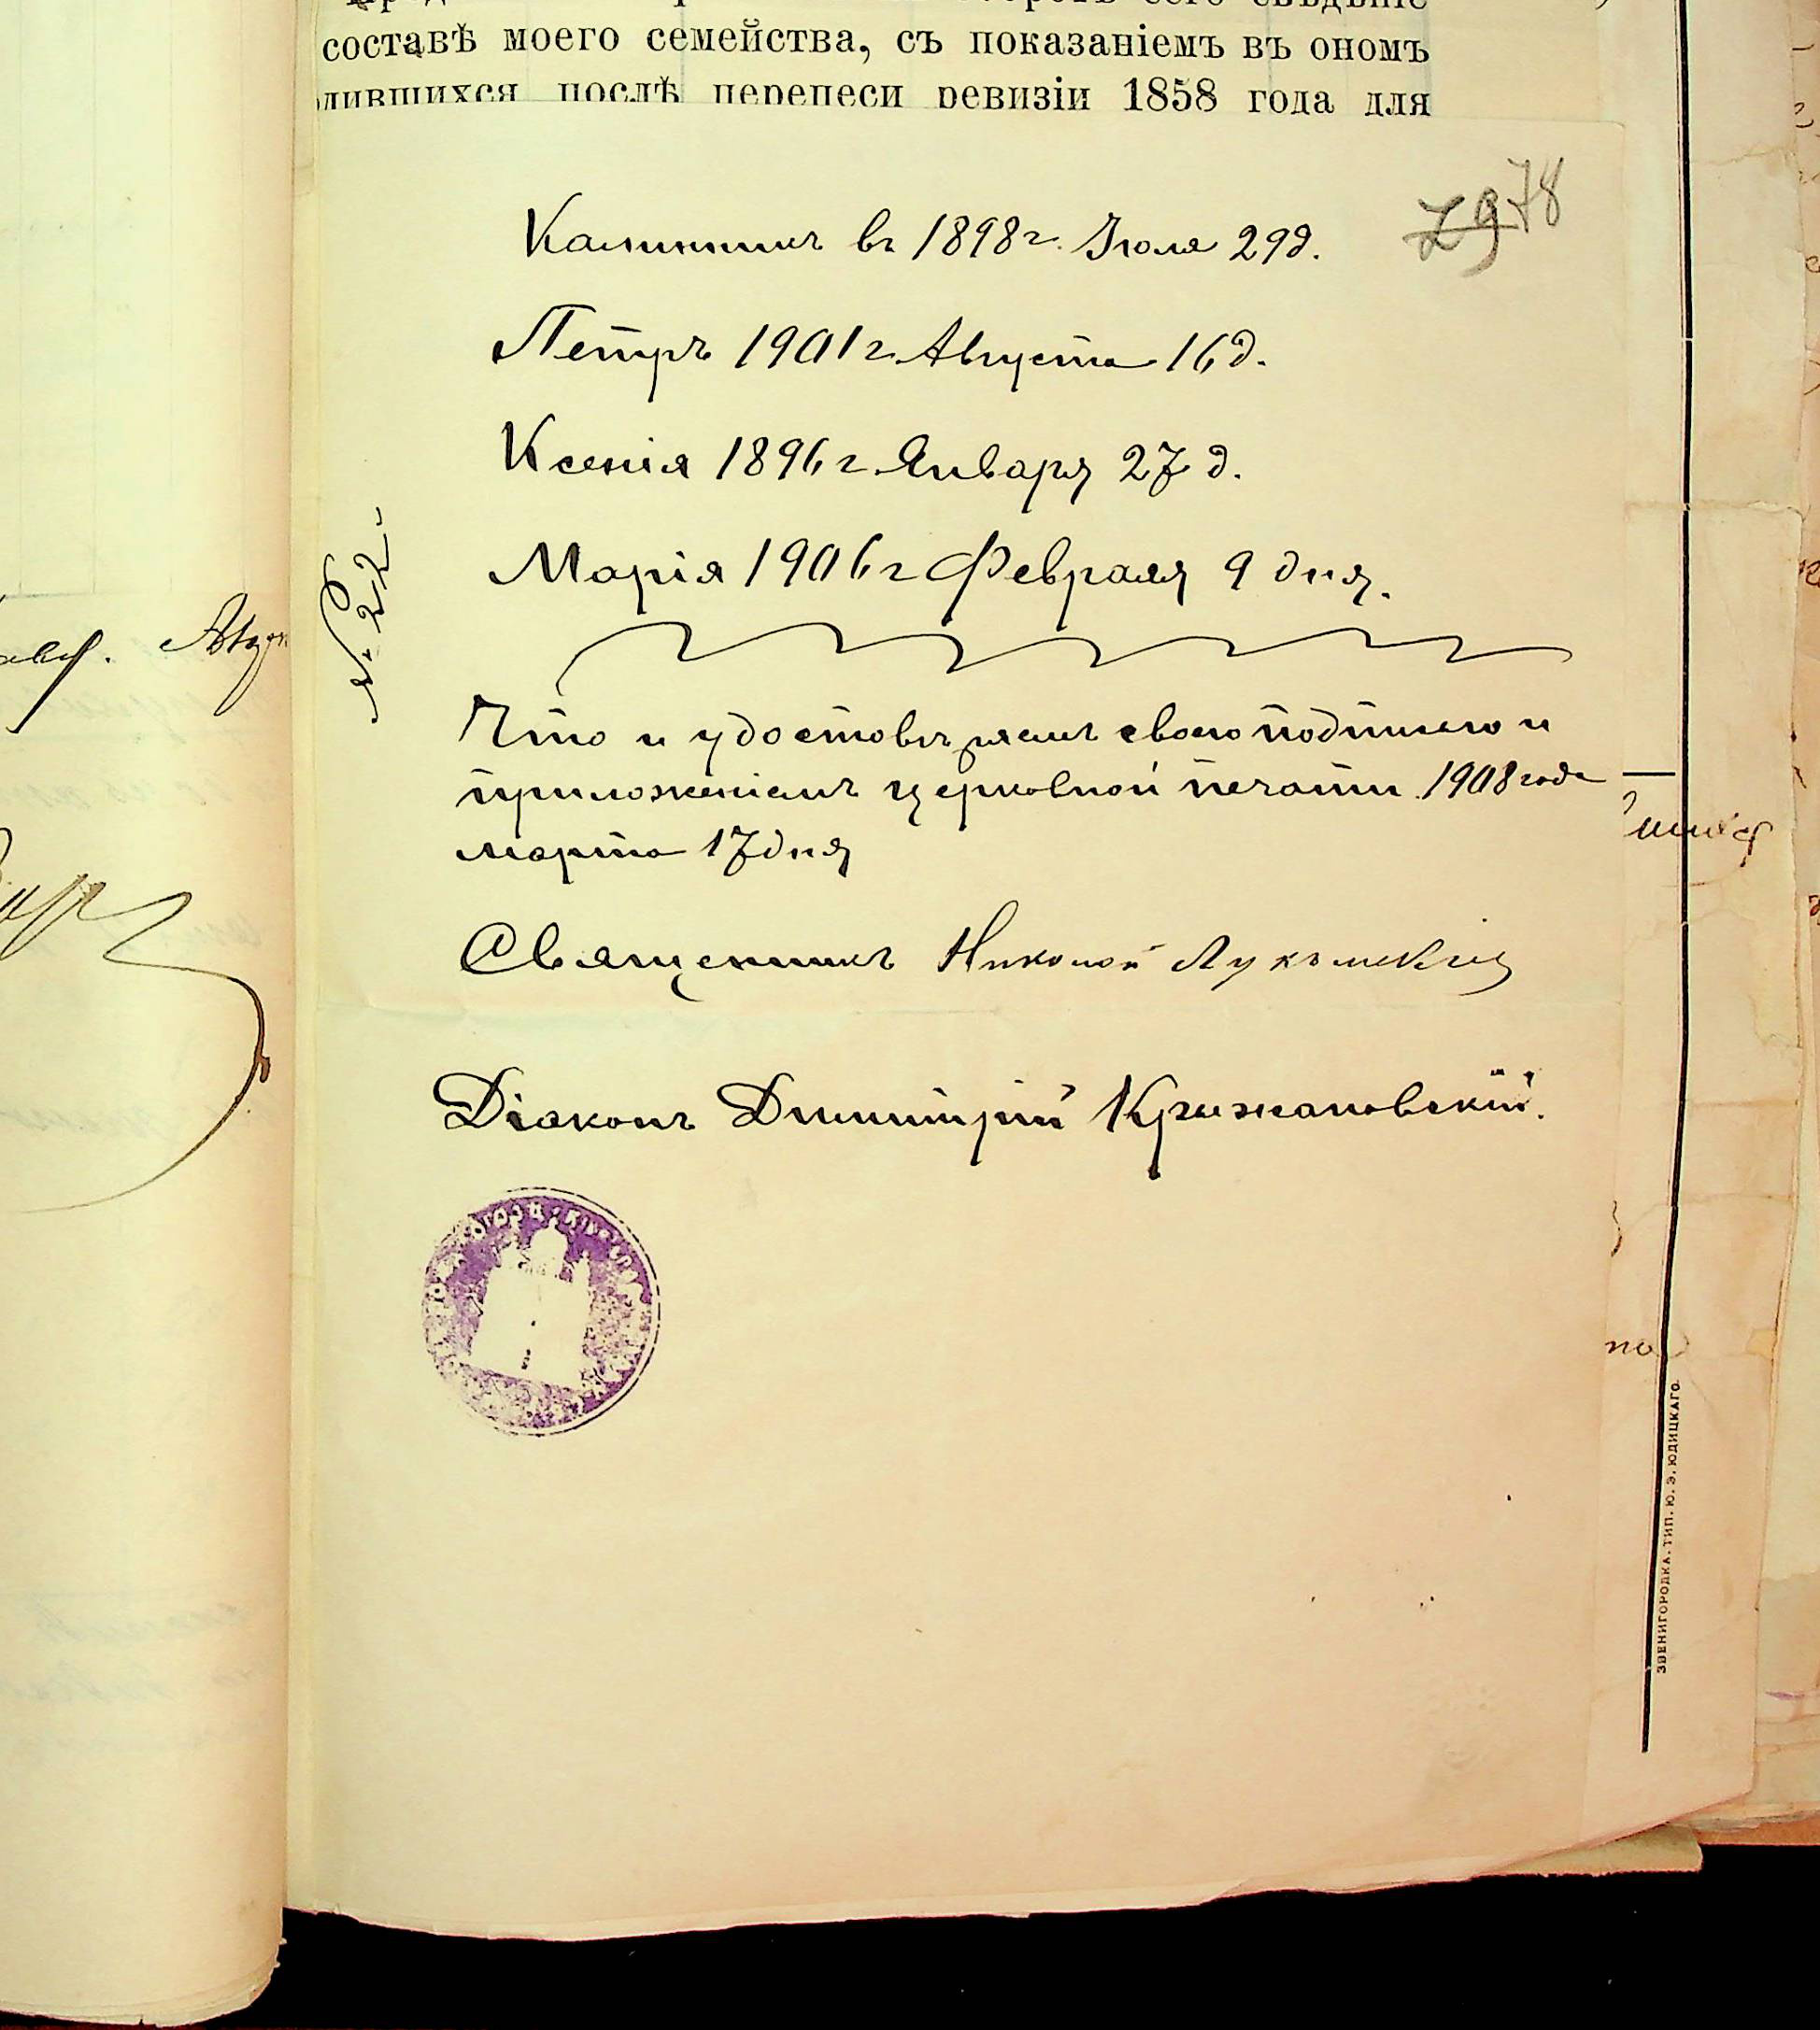 составѣ моего семейства, съ показаніемъ въ ономъ
послѣ переписи ревизіи 1858 года для
79 78
Калинникъ въ 1898 г. Іюля 29 д.
Петръ 1901 г. Августа 16 д.
Ксенія 1896 г. Января 27 д.
Марія 1906 г Февраля 9 дня.
№ 22.
Что и удостовѣряемъ своею подписью и
приложеніемъ церковной печати. 1908 года
марта 17 дня
Священникъ Николай
Діаконъ Димитрій Крыжановскій.
ЗВЕНИГОРОДКА. ТИП. Ю. Э. ЮДИЦКАГО.